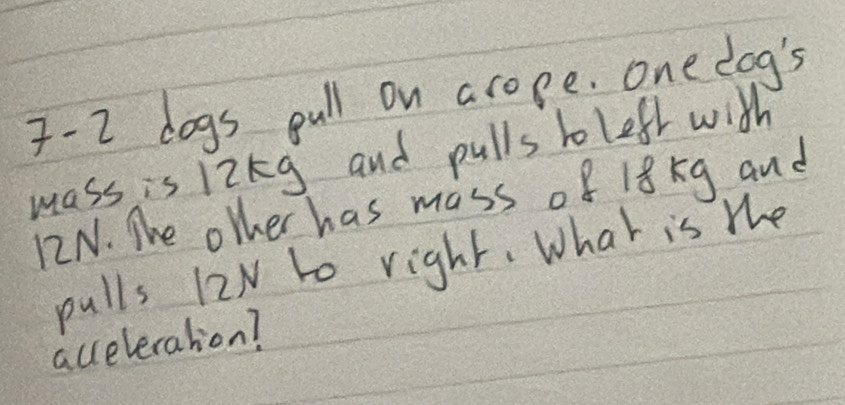 7-2 dogs pull on a rope. One dog's
mass is 12kg and pulls to left with
12N. The other has mass of 18kg and
pulls 12N to right. What is the
acceleration?